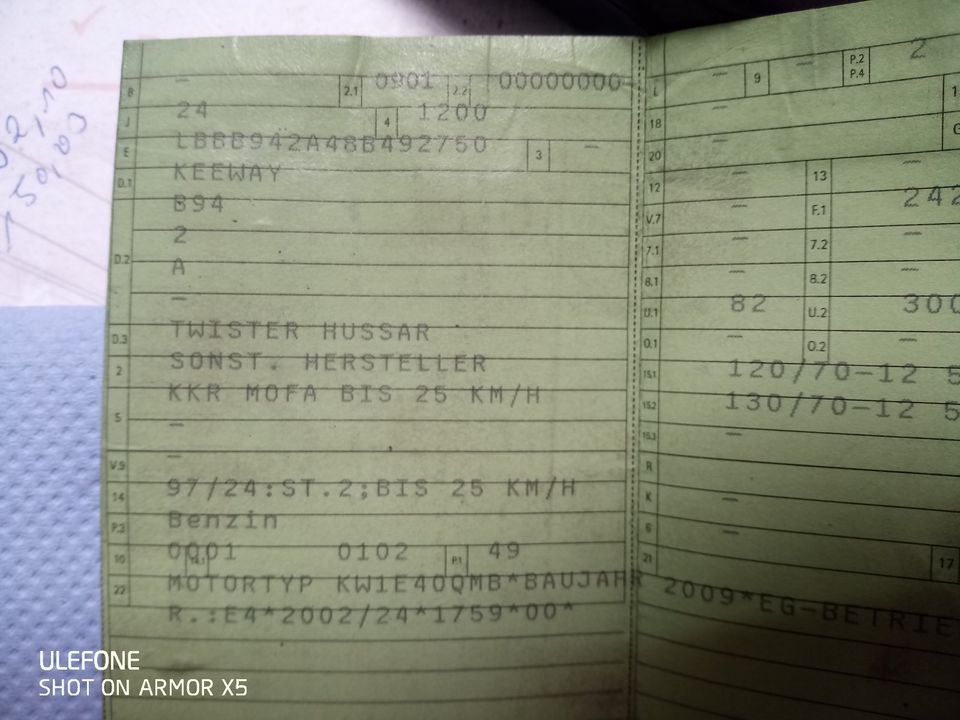 B – 2.1 0901 2.2 00000000 L – 9 – P.2 P.4 2
J 24 4 1200 18 –
E LBBB942A48B492750 3 – 20
D.1 KEEWAY 12 – 13 –
B94 V.7 – F.1 242
D.2 2 7.1 – 7.2 –
A 8.1 – 8.2 –
– U.1 82 U.2 300
D.3 TWISTER HUSSAR O.1 – O.2 –
2 SONST. HERSTELLER 15.1 120/70-12 5
KKR MOFA BIS 25 KM/H 15.2 130/70-12 5
5 – 15.3 –
V.9 – R
14 97/24:ST.2;BIS 25 KM/H K –
P.3 Benzin 6 –
10 0001 14.1 0102 P.1 49 21 17
22 MOTORTYP KW1E40QMB*BAUJAHR 2009*EG-BETRIE
R.:E4*2002/24*1759*00*
ULEFONE
SHOT ON ARMOR X5